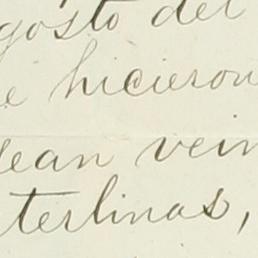 gosto del
e hicieron
sean vein
terlinas,